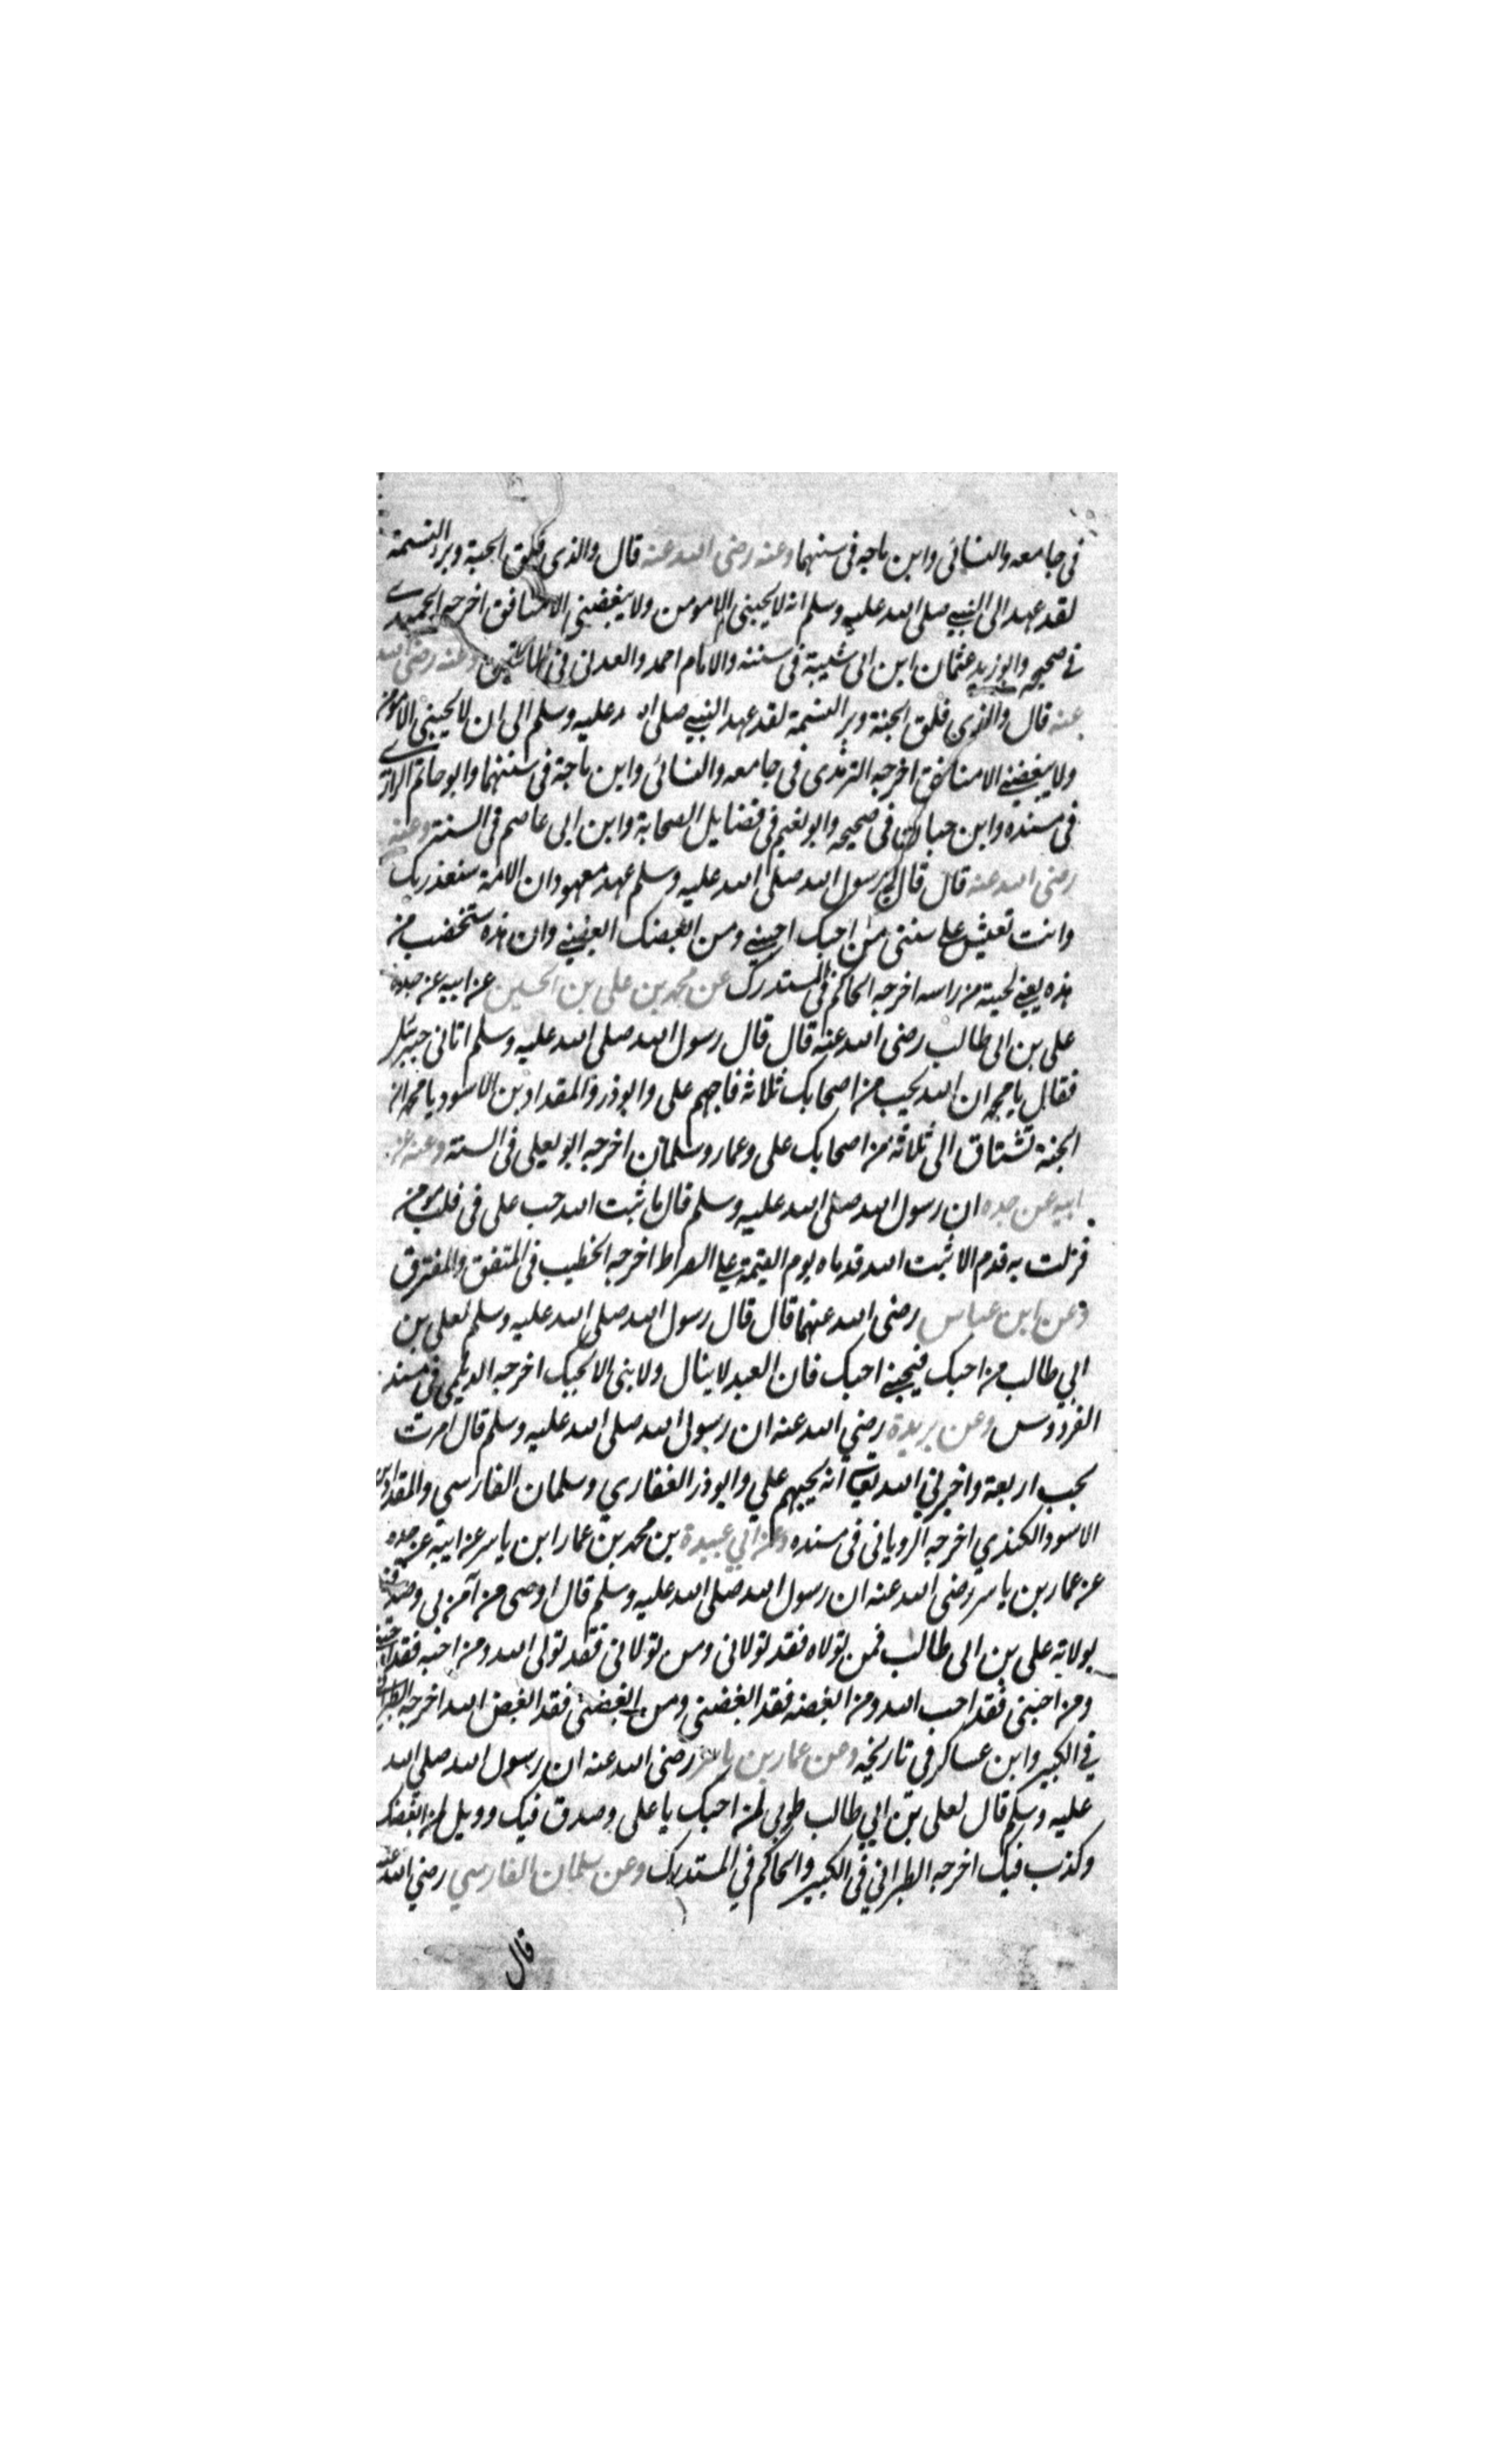 في جامعه والنسائي وابن ماجه في سننهما وعنه رضي الله عنه قال والذي فلق الحبة وبرء النسمة
لقد عهد الي النبي صلى الله عليه وسلم انه لا يحبني الا مومن ولا يبغضني الا منافق اخرجه الحميدي
في صحيحه وابو زيد عثمان ابن ابي شيبة في سننه والامام احمد والعدني في وعنه رضي الله
عنه قال والذي فلق الجنة وبر النسمة لقد عهد النبي صلى الله عليه وسلم الى ان لا يحبني الا مومن
ولا يبغضني الا منافق اخرجه الترمذي في جامعه والنسائي وابن ماجة في سننهما وابو حاتم الرازي
في مسنده وابن حبان في صحيحه وابو نعيم في فضايل الصحابة وابن ابي عاصم في السنة وعنه
رضي الله عنه قال قال لي رسول الله صلى الله عليه وسلم عهد معهود ان الامة ستغدر بك
وانت تعيش على سنتي من احبك احبني ومن ابغضك ابغضني وان هذه ستخضب من
هذه يعني لحيته من راسه اخرجه الحاكم في المستدرك عن محمد بن علي بن الحسين عن ابيه عن جده
علي بن ابي طالب رضي الله عنه قال قال رسول الله صلى الله عليه وسلم اتاني جبرئيل
فقال يا محمد ان الله يحب من اصحابك ثلاثة فاحبهم علي وابو ذر والمقداد بن الاسود يا محمد ان
الجنة تشتاق الى ثلاثة من اصحابك علي وعمار وسلمان اخرجه ابو يعلي في السنة وعنه عن
ابيه عن جده ان رسول الله صلى الله عليه وسلم قال ما ثبت الله حب علي في قلب مومن
فزلت به قدم الا ثبت الله قدماه يوم القيمة على الصراط اخرجه الخطيب في المتفق والمفترق
وعن ابن عباس رضي الله عنهما قال قال رسول الله صلى الله عليه وسلم لعلي بن
ابي طالب من احبك فيحبني احبك فان العبد لا ينال ولا بني الا بحبك اخرجه الديلمي في مسند
الفردوس وعن بريدة رضي الله عنه ان رسول الله صلى الله عليه وسلم قال امرت
بحب اربعة واخبرني الله تعالى انه يحبهم علي وابو ذر الغفاري وسلمان الفارسي والمقداد بن
الاسود الكندي اخرجه الروياني في مسنده وعن ابي عبيدة بن محمد بن عمار ابن ياسر عن ابيه عن جده
عن عمار بن ياسر رضي الله عنه ان رسول الله صلى الله عليه وسلم قال اوصي من آمن بي وصدقني
بولاية علي بن ابي طالب فمن تولاه فقد تولاني ومن تولاني فقد تولى الله ومن احبه فقد احبني
ومن احبني فقد احب الله ومن ابغضه فقد ابغضني ومن ابغضني فقد ابغض الله اخرجه الطبراني
في الكبير وابن عساكر في تاريخه وعن عمار بن ياسر رضي الله عنه ان رسول الله صلى الله
عليه وسلم قال لعلي بن ابي طالب طوبى لمن احبك يا علي وصدق فيك وويل لمن ابغضك
وكذب فيك اخرجه الطبراني في الكبير والحاكم في المستدرك وعن سلمان الفارسي رضي الله عنه
قال